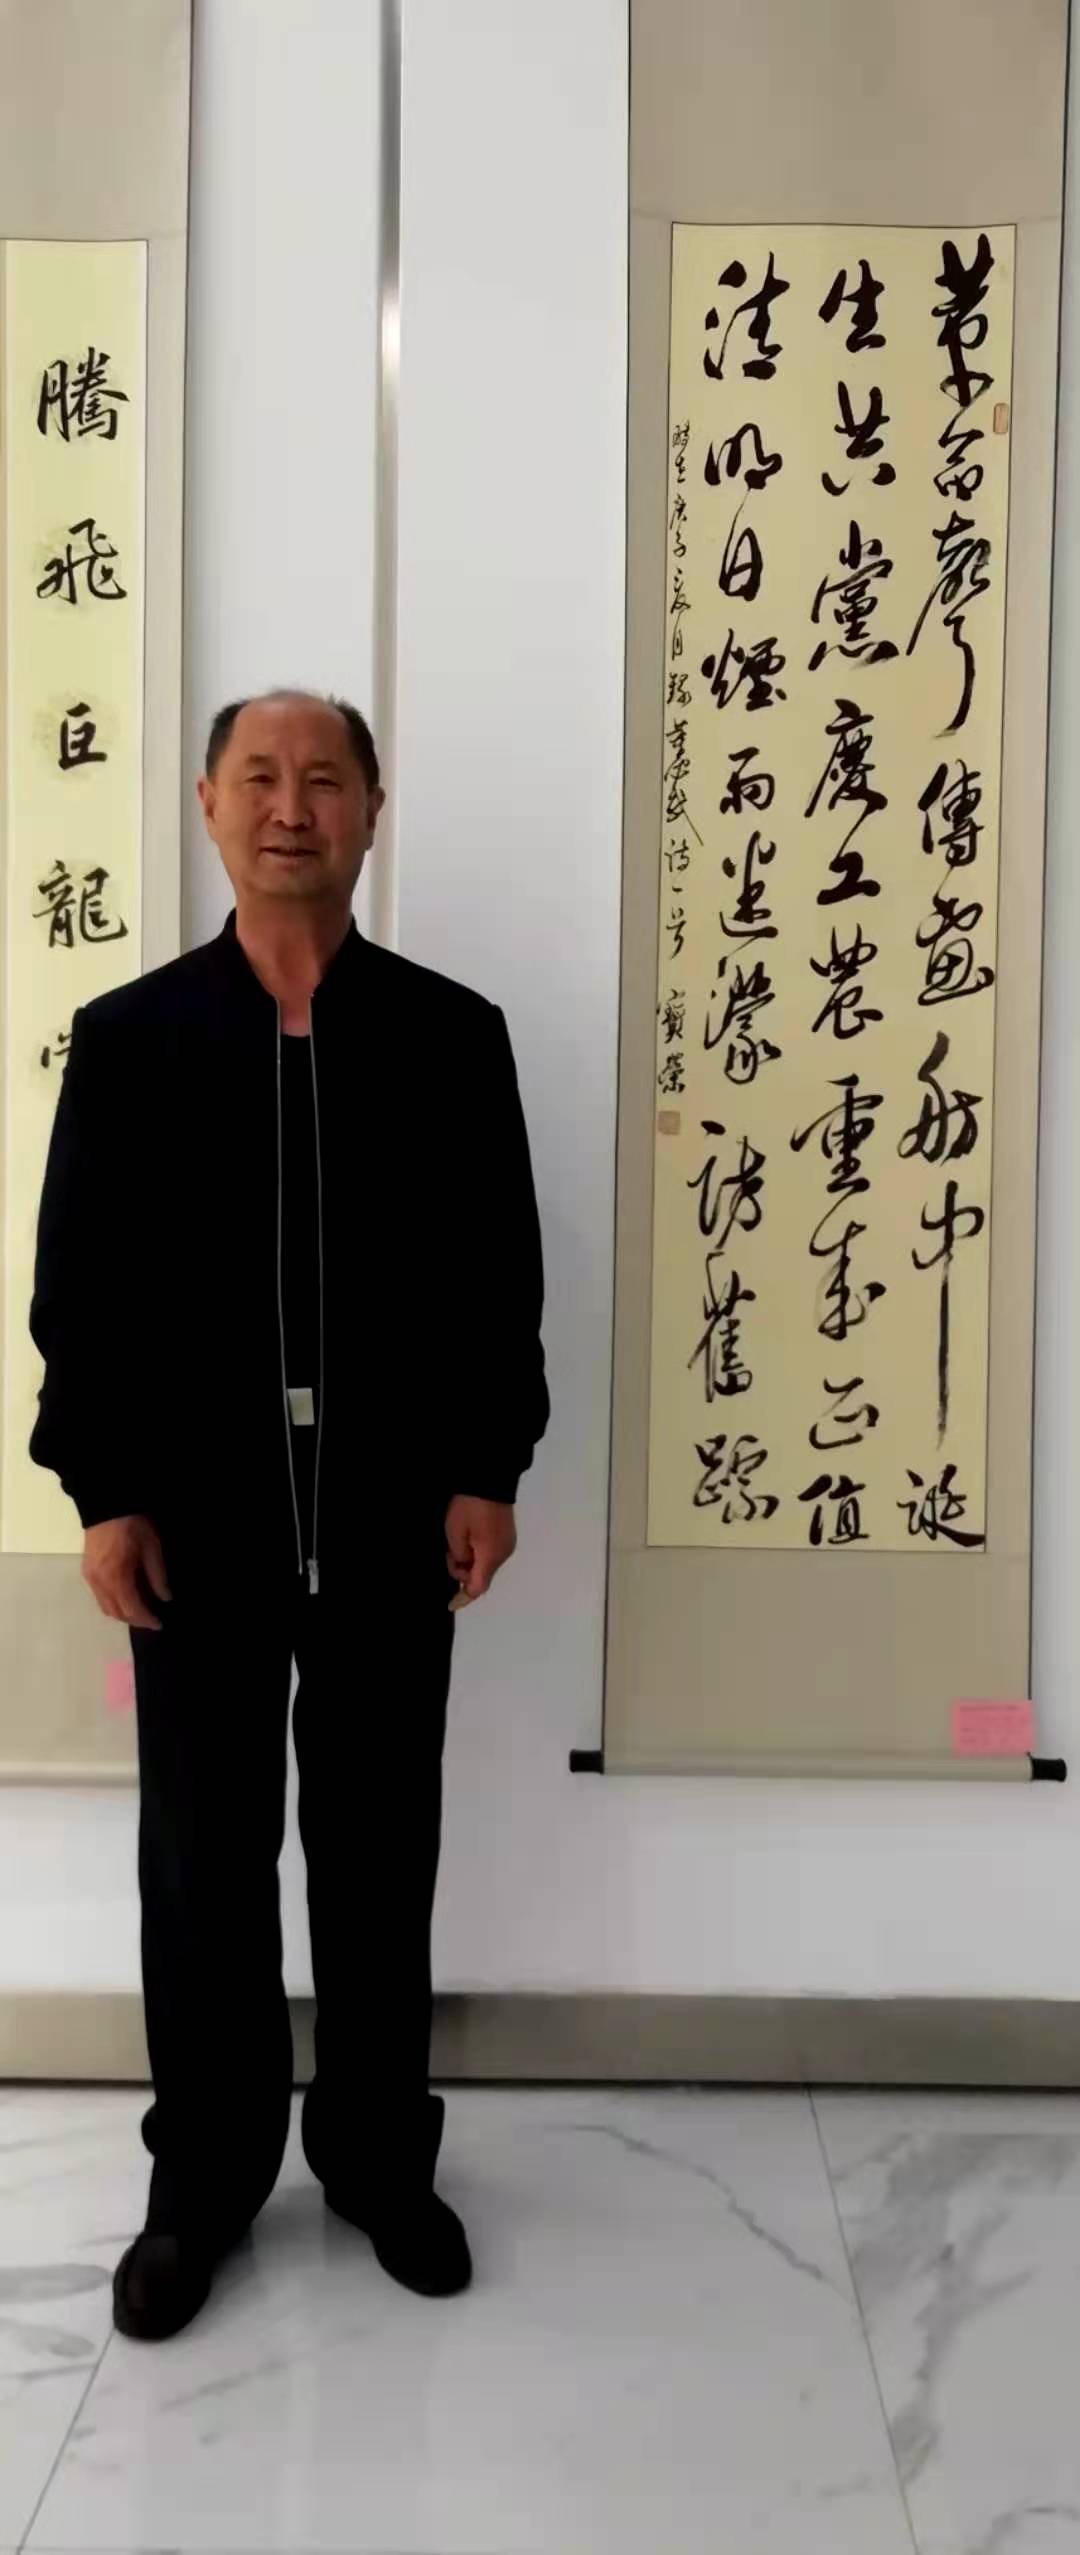 革命聲傳畫舫中誕
生共黨慶工農重來正值
清明日煙雨迷濛訪舊踪
時在庚子夏月錄董必武詩一首 寶榮
騰飛巨龍